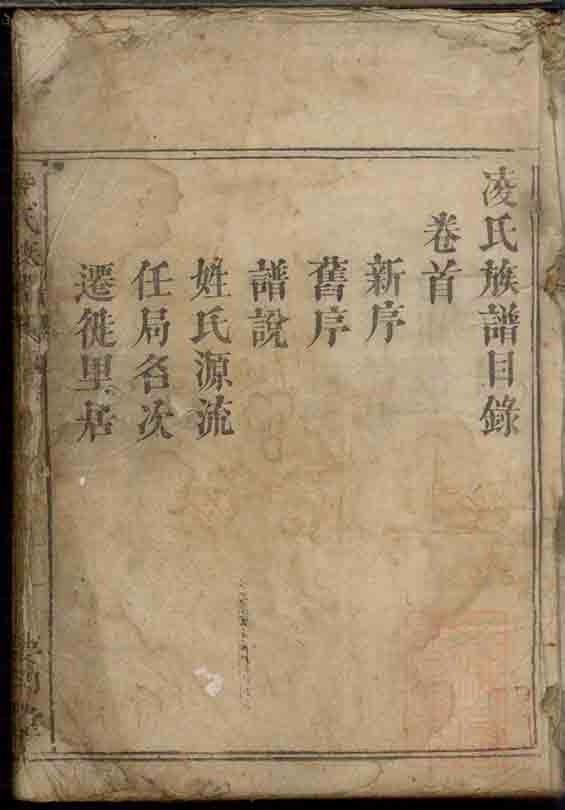 凌氏族譜目錄
卷首
新序
舊序
譜說
姓氏源流
任局名次
遷徙里居
氏族譜